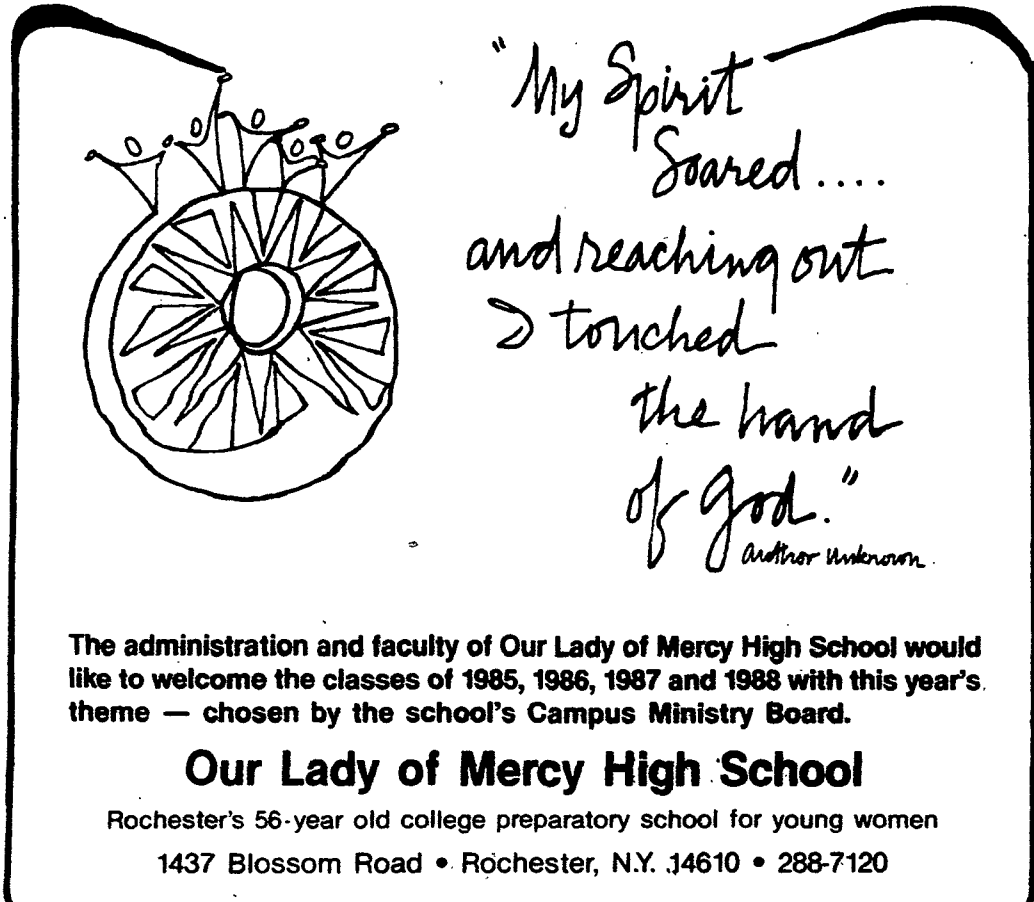 "My Spirit
Soared....
and reaching out
I touched
the hand
of God."
Author Unknown.
The administration and faculty of Our Lady of Mercy High School would
like to welcome the classes of 1985, 1986, 1987 and 1988 with this year's
theme — chosen by the school's Campus Ministry Board.
Our Lady of Mercy High School
Rochester's 56-year old college preparatory school for young women
1437 Blossom Road • Rochester, N.Y. 14610 • 288-7120